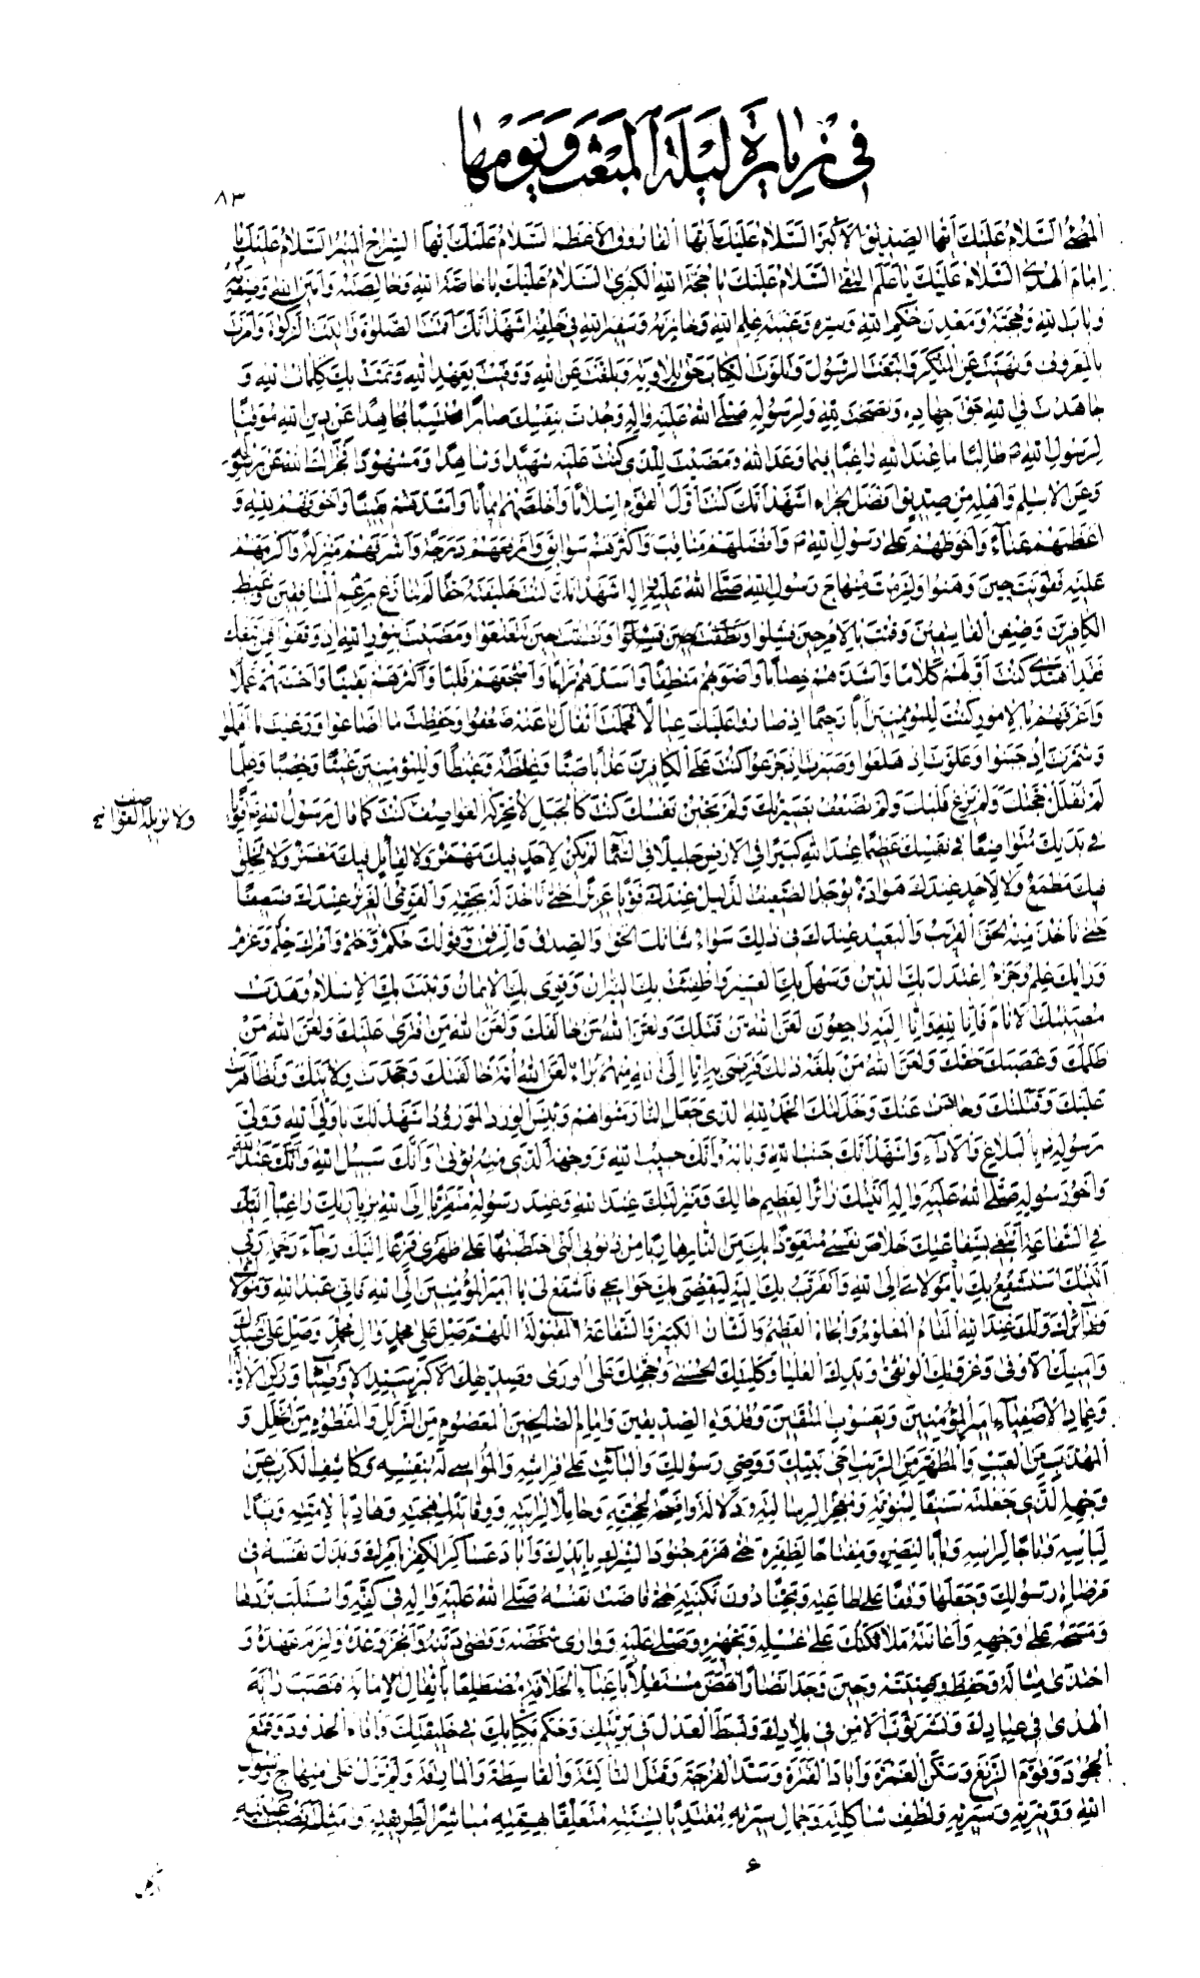 في زيارة ليلة المبعث ويومها
٨٣
المضيء السلام عليك أيها الصديق الأكبر السلام عليك أيها الفاروق الأعظم السلام عليك أيها السراج المنير السلام عليك يا
إمام الهدى السلام عليك يا علم التقى السلام عليك يا حجة الله الكبرى السلام عليك يا خاصة الله وخالصته وأمين الله وصفوته
وباب الله وحجته ومعدن حكم الله وسره وعيبة علم الله وخازنه وسفير الله في خلقه أشهد أنك أقمت الصلوة وآتيت الزكوة وأمرت
بالمعروف ونهيت عن المنكر واتبعت الرسول وتلوت الكتاب حق تلاوته وبلغت عن الله ووفيت بعهد الله وتمت بك كلمات الله و
جاهدت في الله حق جهاده ونصحت لله ولرسوله صلى الله عليه وآله وجدت بنفسك صابرا محتسبا مجاهدا عن دين الله موقيا
لرسول الله ص طالبا ما عند الله راغبا فيما وعد الله ومضيت للذي كنت عليه شهيدا وشاهدا ومشهودا فجزاك الله عن رسوله
وعن الاسلام وأهله من صديق أفضل الجزاء أشهد أنك كنت أول القوم إسلاما وأخلصهم إيمانا وأشدهم يقينا وأخوفهم لله و
أعظمهم عناء وأحوطهم على رسول الله ص وأفضلهم مناقب وأكثرهم سوابق وأرفعهم درجة وأشرفهم منزلة وأكرمهم
عليه فقويت حين وهنوا ولزمت منهاج رسول الله صلى الله عليه وآله أشهد أنك كنت خليفته حقا لم تنازع برغم المنافقين وغيظ
الكافرين وضغن الفاسقين وقمت بالأمر حين فشلوا ونطقت حين تتعتعوا ومضيت بنور الله إذ وقفوا فمن تبعك
فقد اهتدى كنت أولهم كلاما وأشدهم خصاما وأصوبهم منطقا وأسدهم رأيا وأشجعهم قلبا وأكثرهم يقينا وأحسنهم عملا
وأعرفهم بالأمور كنت للمؤمنين أبا رحيما إذ صاروا عليك عيالا فحملت أثقال ما عنه ضعفوا وحفظت ما أضاعوا ورعيت ما أهملوا
وشمرت إذ جبنوا وعلوت إذ هلعوا وصبرت إذ جزعوا كنت على الكافرين عذابا صبا وغلظة وغيظا وللمؤمنين غيثا وخصبا وعلما
لم تفلل حجتك ولم يزغ قلبك ولم تضعف بصيرتك ولم تجبن نفسك كنت كالجبل لا تحركه العواصف كنت كما قال رسول الله ص قويا
ولا تزيله القواصف
في بدنك متواضعا في نفسك عظيما عند الله كبيرا في الأرض جليلا في السماء لم يكن لأحد فيك مهمز ولا لقائل فيك مغمز ولا لخلق
فيك مطمع ولا لأحد عندك هوادة يوجد الضعيف الذليل عندك قويا عزيزا حتى تأخذ له بحقه والقوي العزيز عندك ضعيفا
حتى تأخذ منه الحق القريب والبعيد عندك في ذلك سواء شأنك الحق والصدق والرفق وقولك حكم وحتم وأمرك حلم وعزم
ورأيك علم وحزم اعتدل بك الدين وسهل بك العسير وأطفئت بك النيران وقوي بك الايمان وثبت بك الإسلام وهدت
مصيبتك الأنام فإنا لله وإنا إليه راجعون لعن الله من قتلك ولعن الله من خالفك ولعن الله من افترى عليك ولعن الله من
ظلمك وغصبك حقك ولعن الله من بلغه ذلك فرضي به إنا إلى الله منهم براء لعن الله أمة خالفتك وجحدت ولايتك وتظاهرت
عليك وقتلتك وحادت عنك وخذلتك الحمد لله الذي جعل النار مثواهم وبئس الورد المورود أشهد لك يا ولي الله وولي
رسوله ص بالبلاغ والأداء وأشهد أنك جنب الله وبابه وأنك حبيب الله ووجهه الذي منه يؤتى وأنك سبيل الله وأنك عبد الله
وأخو رسوله صلى الله عليه وآله أتيتك زائرا لعظيم حالك ومنزلتك عند الله وعند رسوله متقربا إلى الله بزيارتك راغبا إليك
في الشفاعة أبتغي بشفاعتك خلاص نفسي متعوذا بك من النار هاربا من ذنوبي التي احتطبتها على ظهري فزعا إليك رجاء رحمة ربي
أتيتك أستشفع بك يا مولاي إلى الله وأتقرب بك إليه ليقضي بك حوائجي فاشفع لي يا أمير المؤمنين إلى الله فإني عبد الله ومولاك
وزائرك ولك عند الله المقام المعلوم والجاه العظيم والشأن الكبير والشفاعة المقبولة اللهم صل على محمد وآل محمد وصل على عبدك
وأمينك الأوفى وعروتك الوثقى ويدك العليا وكلمتك الحسنى وحجتك على الورى وصديقك الأكبر سيد الأوصياء وركن الأولياء
وعماد الأصفياء أمير المؤمنين ويعسوب المتقين وقدوة الصديقين وإمام الصالحين المعصوم من الزلل والمفطوم من الخلل و
المهذب من العيب والمطهر من الريب أخي نبيك ووصي رسولك والبائت على فراشه والمواسي له بنفسه وكاشف الكرب عن
وجهه الذي جعلته سيفا لنبوته ومعجزا لرسالته ودلالة واضحة لحجته وحاملا لرايته ووقاية لمهجته وهاديا لامته ويدا
لبأسه وتاجا لرأسه وبابا لنصره ومفتاحا لظفره حتى هزم جنود الشرك بأيدك وأباد عساكر الكفر بأمرك وبذل نفسه في
مرضاة رسولك وجعلها وقفا على طاعته ومجنا دون نكبته حتى فاضت نفسه صلى الله عليه وآله في كفه واستلب بردها
ومسحه على وجهه وأعانته ملائكتك على غسله وتجهيزه وصلى عليه ووارى شخصه وقضى دينه وأنجز وعده ولزم عهده و
احتذى مثاله وحفظ وصيته وحين وجد أنصارا نهض مستقلا بأعباء الخلافة مضطلعا بأثقال الإمامة فنصب راية
الهدى في عبادك ونشر ثوب الأمن في بلادك وبسط العدل في بريتك وحكم بكتابك في خليقتك وأقام الحدود وقمع
الجحود وقوم الزيغ وسكن الغمرة وأباد الفترة وسد الفرجة وقتل الناكثة والقاسطة والمارقة ولم يزل على منهاج رسول
الله ووتيرته وسيرته ولطف شاكلته وجمال سيرته مقتديا بسنته متعلقا بهمته مباشرا لطريقته وأمثلته نصب عينيه